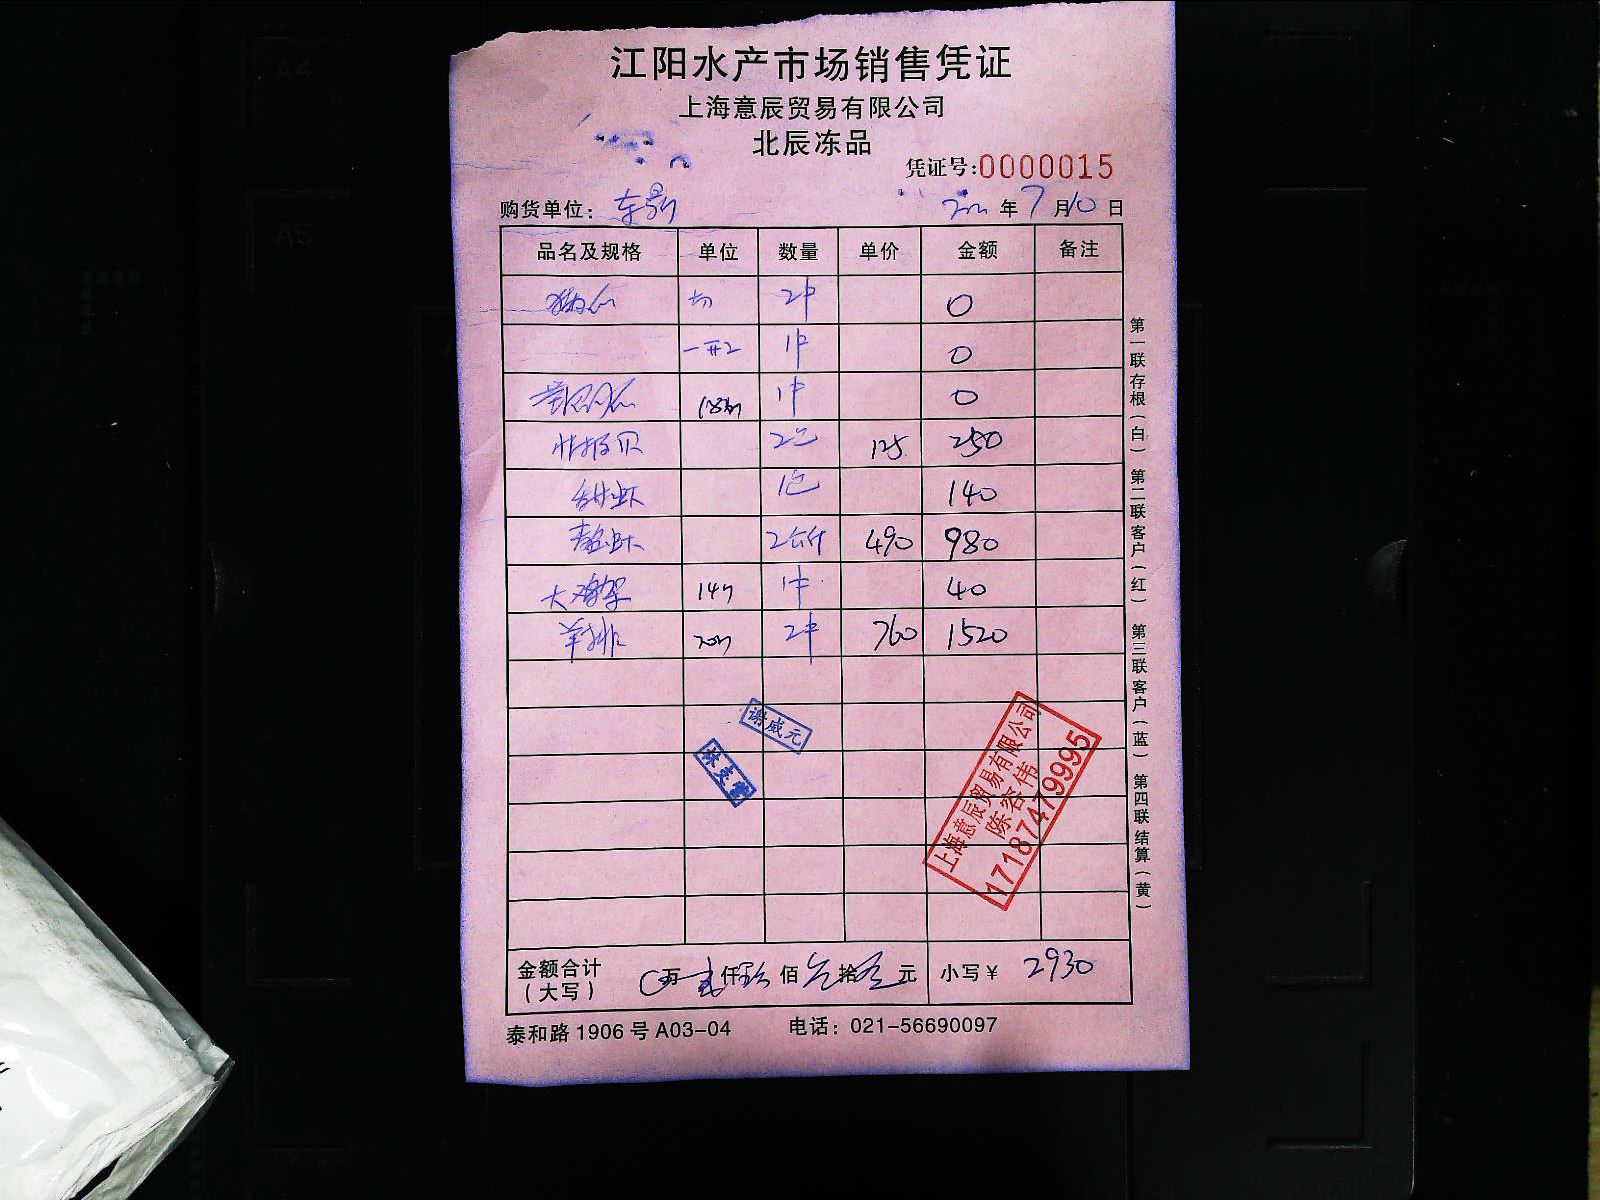 江阳水产市场销售凭证
上海意辰贸易有限公司
北辰冻品
凭证号:0000015
购货单位: 东鼎 年 7 月 10 日
品名及规格 单位 数量 单价 金额 备注
2件 0
1件 0
1件 0
贝 2包 125 250
甜虾 1包 140
青虾 2公斤 490 980
大鸡架 1件 40
羊排 2件 760 1520
谢威元
上海意辰贸易有限公司
陈容伟
17187479995
金额合计(大写) 0万贰仟玖佰叁拾元 小写¥ 2930
泰和路1906号A03-04 电话:021-56690097
第一联存根(白) 第二联客户(红) 第三联客户(蓝) 第四联结算(黄)
A4
A5